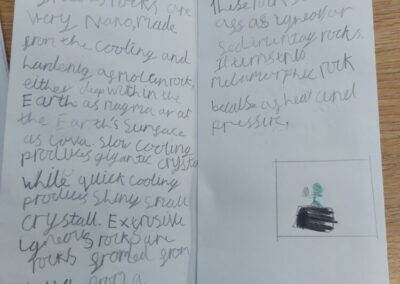 rocks are
very Nano, made
from the cooling and
hardening as molten rock,
either deep within the
Earth as magma or at
the Earth's surface
as lava. Slow cooling
produces gigantic crystals
while quick cooling
produces shiny small
crystall. Extrusive
igneous rocks are
rocks gromed from
These rocks
as igneous or
Sedimentary rocks.
It turns into
metamorphic rock
as heat and
pressure,